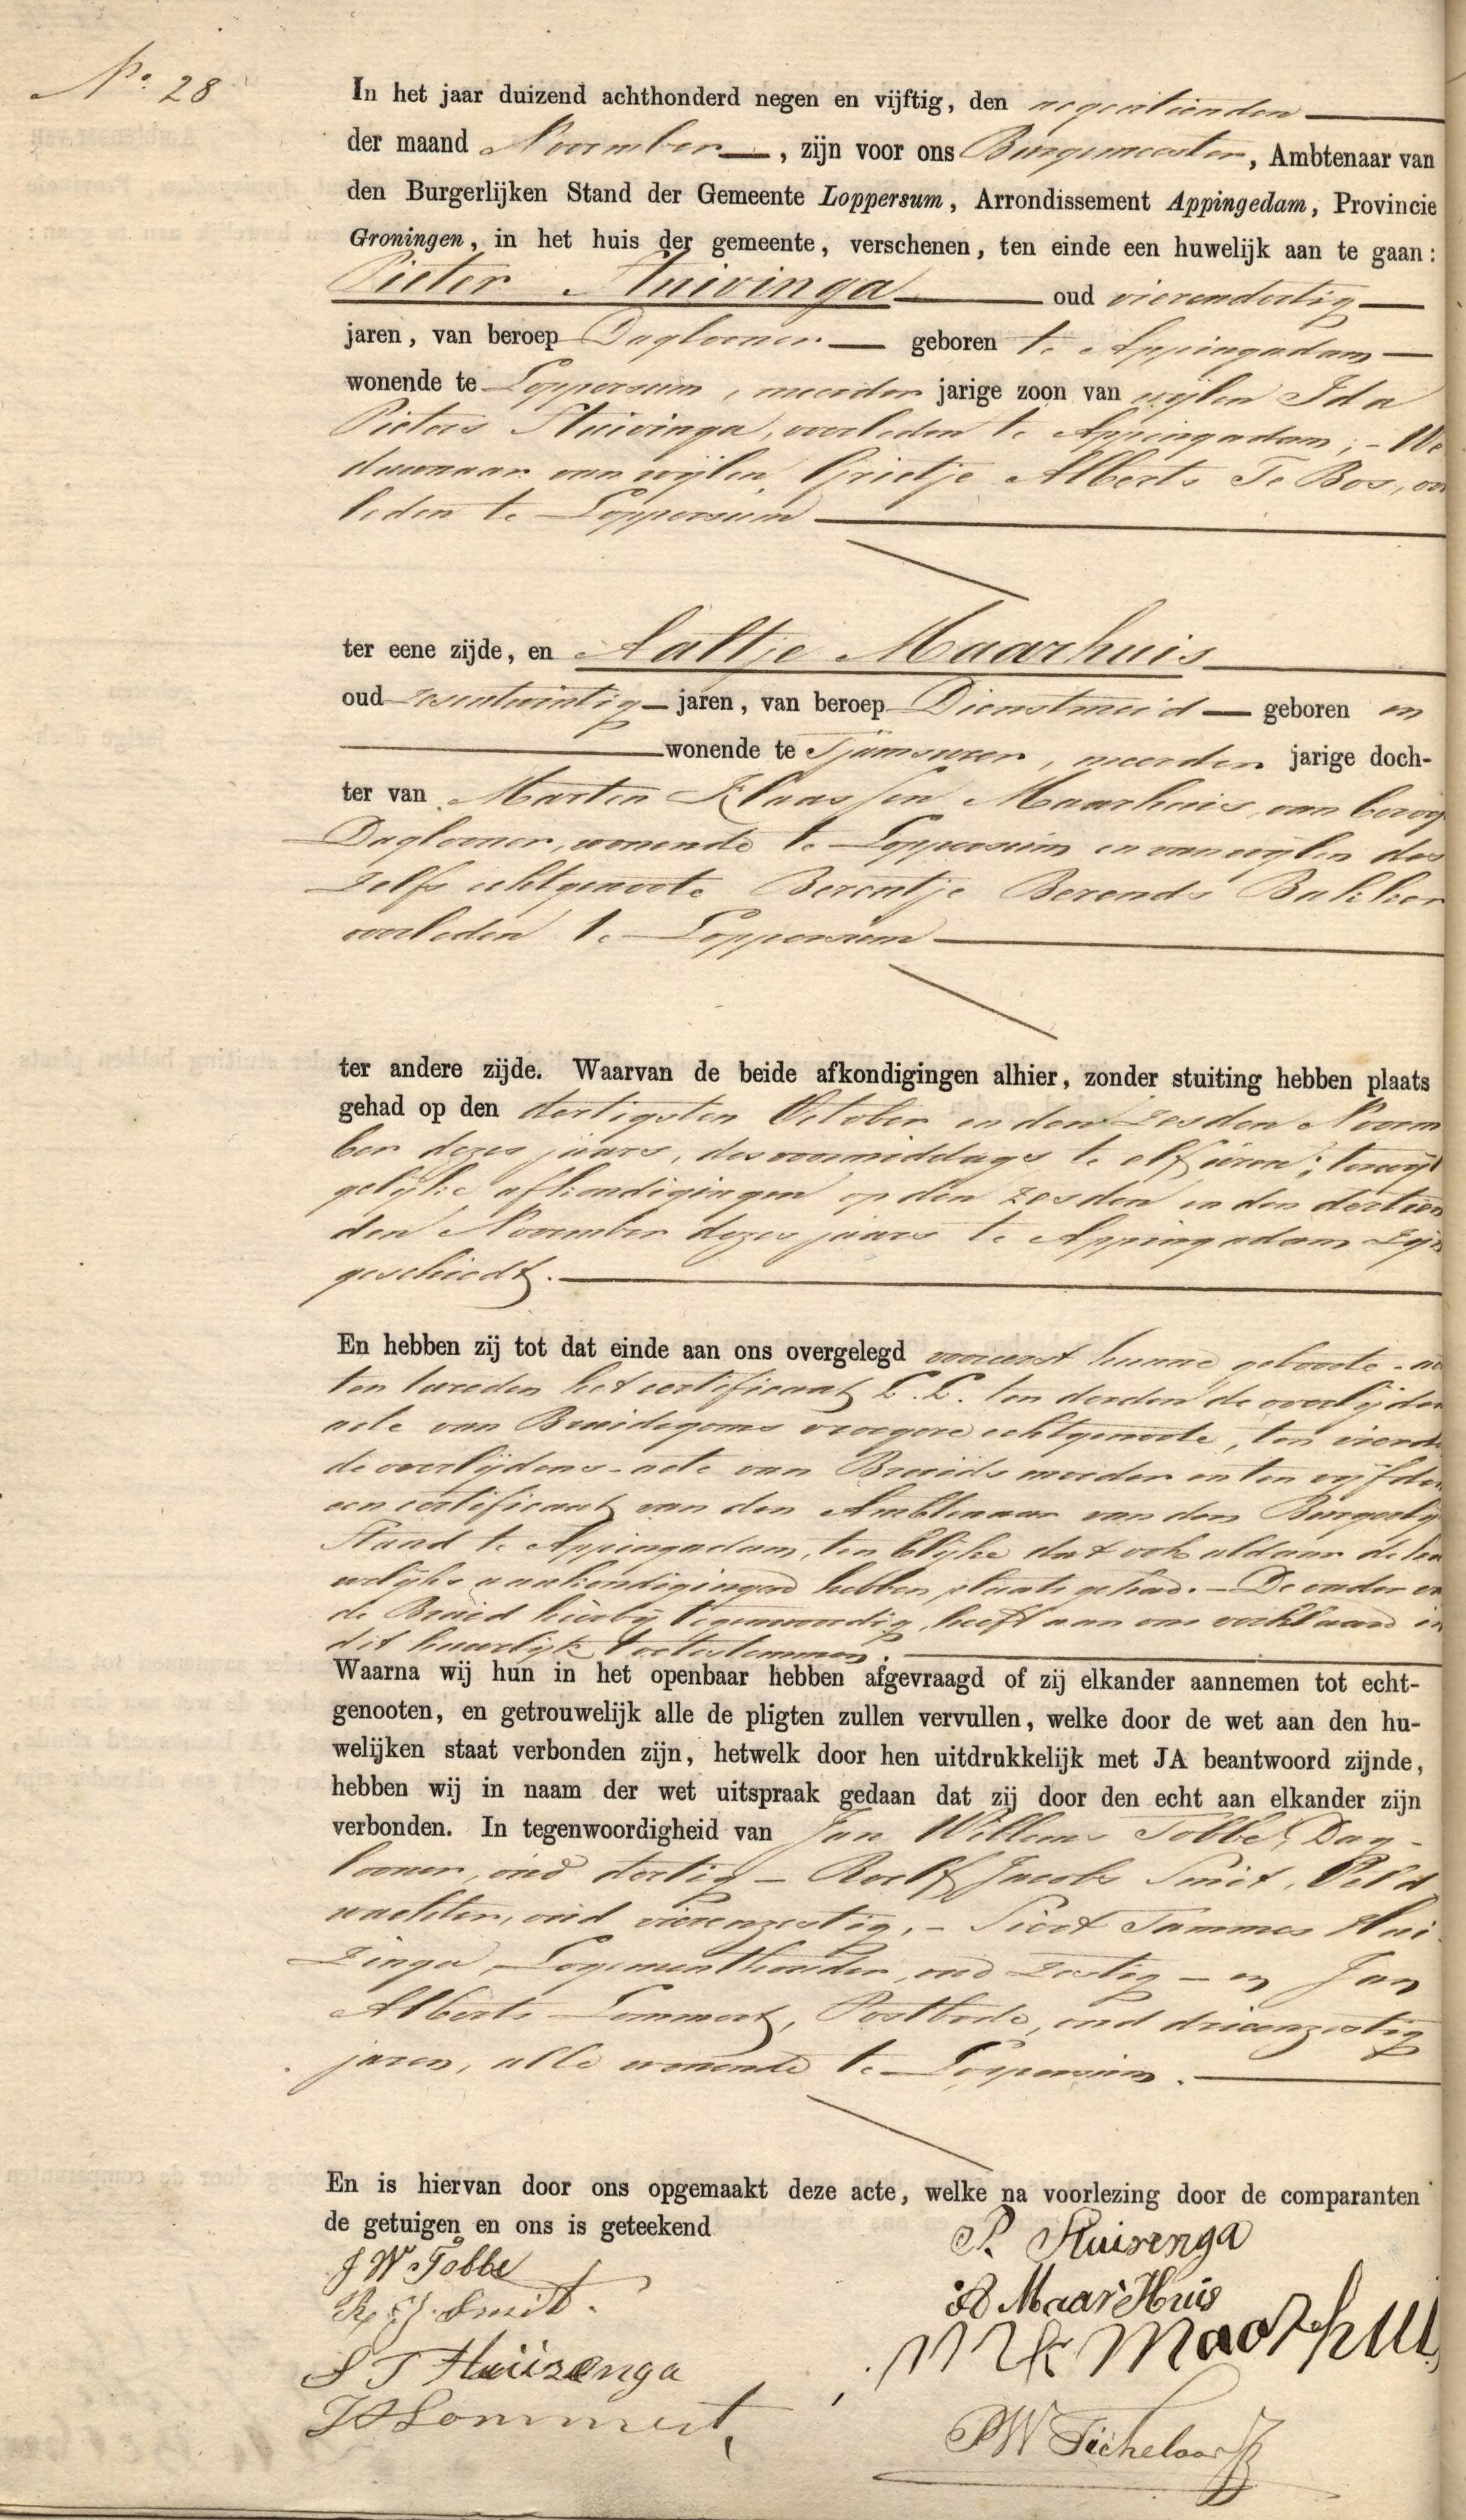 No. 28
In het jaar duizend achthonderd negen en vijftig, den negentienden
der maand November, zijn voor ons Burgemeester, Ambtenaar van
den Burgerlijken Stand der Gemeente Loppersum, Arrondissement Appingedam, Provincie
Groningen, in het huis der gemeente, verschenen, ten einde een huwelijk aan te gaan:
Pieter Stuivinga oud vierendertig
jaren, van beroep Daglooner geboren te Appingadam
wonende te Loppersum, meerder jarige zoon van wijlen Ida
Pieters Stuivinga, overleden te Appingadam; - We
duwnaar van wijlen Grietje Alberts Te Bos, ov
leden te Loppersum
ter eene zijde, en Aaltje Maarhuis
oud zesentwintig jaren, van beroep Dienstmeid geboren en
wonende te Tjamsweer, meerder jarige doch-
ter van Marten Klaassen Maarhuis, van beroep
Daglooner, wonende te Loppersum en van wijlen des
zelfs echtgenoote Berentje Berends Bakker
overleden te Loppersum
ter andere zijde. Waarvan de beide afkondigingen alhier, zonder stuiting hebben plaats
gehad op den dertigsten October en den zesden Novem
ber dezes jaars, des voormiddags te elf uren; terwijl
gelijke afkondigingen op den zesden en den dertien
den November dezes jaars te Appingadam zijn
geschiedt.
En hebben zij tot dat einde aan ons overgelegd vooreerst hunne geboorte-ac
ten tweeden het certificaat L. L. ten derden de overlijden
acte van Bruidegoms vroegere echtgenoote, ten vierde
de overlijdens-acte van Bruids moeder en ten vijfden
een certificaat van den Ambtenaar van den Burgerlij
Stand te Appingadam, ten blijke dat ook aldaar de hu
welijks aankondigingen hebben plaats gehad. - De vader van
de Bruid hierbij tegenwoordig, heeft aan ons verklaard in
dit huwelijk toetestemmen.
Waarna wij hun in het openbaar hebben afgevraagd of zij elkander aannemen tot echt-
genooten, en getrouwelijk alle de pligten zullen vervullen, welke door de wet aan den hu-
welijken staat verbonden zijn, hetwelk door hen uitdrukkelijk met JA beantwoord zijnde,
hebben wij in naam der wet uitspraak gedaan dat zij door den echt aan elkander zijn
verbonden. In tegenwoordigheid van Jan Willems Tobbe, Dag-
looner, oud dertig - Roelf Jacobs Smit, Veld
wachter, oud vierenzestig, - Siert Tammes Hui
zinga, Logementhouder, oud zestig - en Jan
Alberts Lommert, Postbode, oud drieenzestig
jaren, alle wonende te Loppersum.
En is hiervan door ons opgemaakt deze acte, welke na voorlezing door de comparanten
de getuigen en ons is geteekend
J W Tobbe
R. J. Smit.
S T Huizenga
J A Lommert,
P. Stuivenga
A MaarHuis
M K Maarhuis
P W Tichelaar